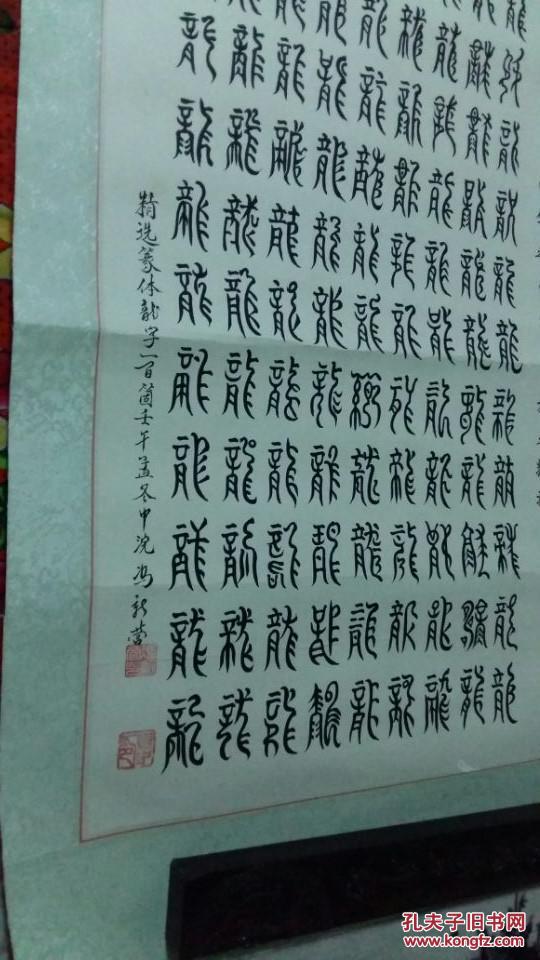 龍龍龍龍龍龍龍龍龍龍龍
龍龍龍龍龍龍龍龍龍龍龍
龍龍龍龍龍龍龍龍龍龍
龍龍龍龍龍龍龍龍龍龍
龍龍龍龍龍龍龍龍龍龍
龍龍龍龍龍龍龍龍龍龍
龍龍龍龍龍龍龍龍龍龍
龍龍龍龍龍龍龍龍龍
龍龍龍龍龍龍龍龍龍
精选篆体龍字一百箇壬午孟冬中浣冯新营
孔夫子旧书网
www.kongfz.com